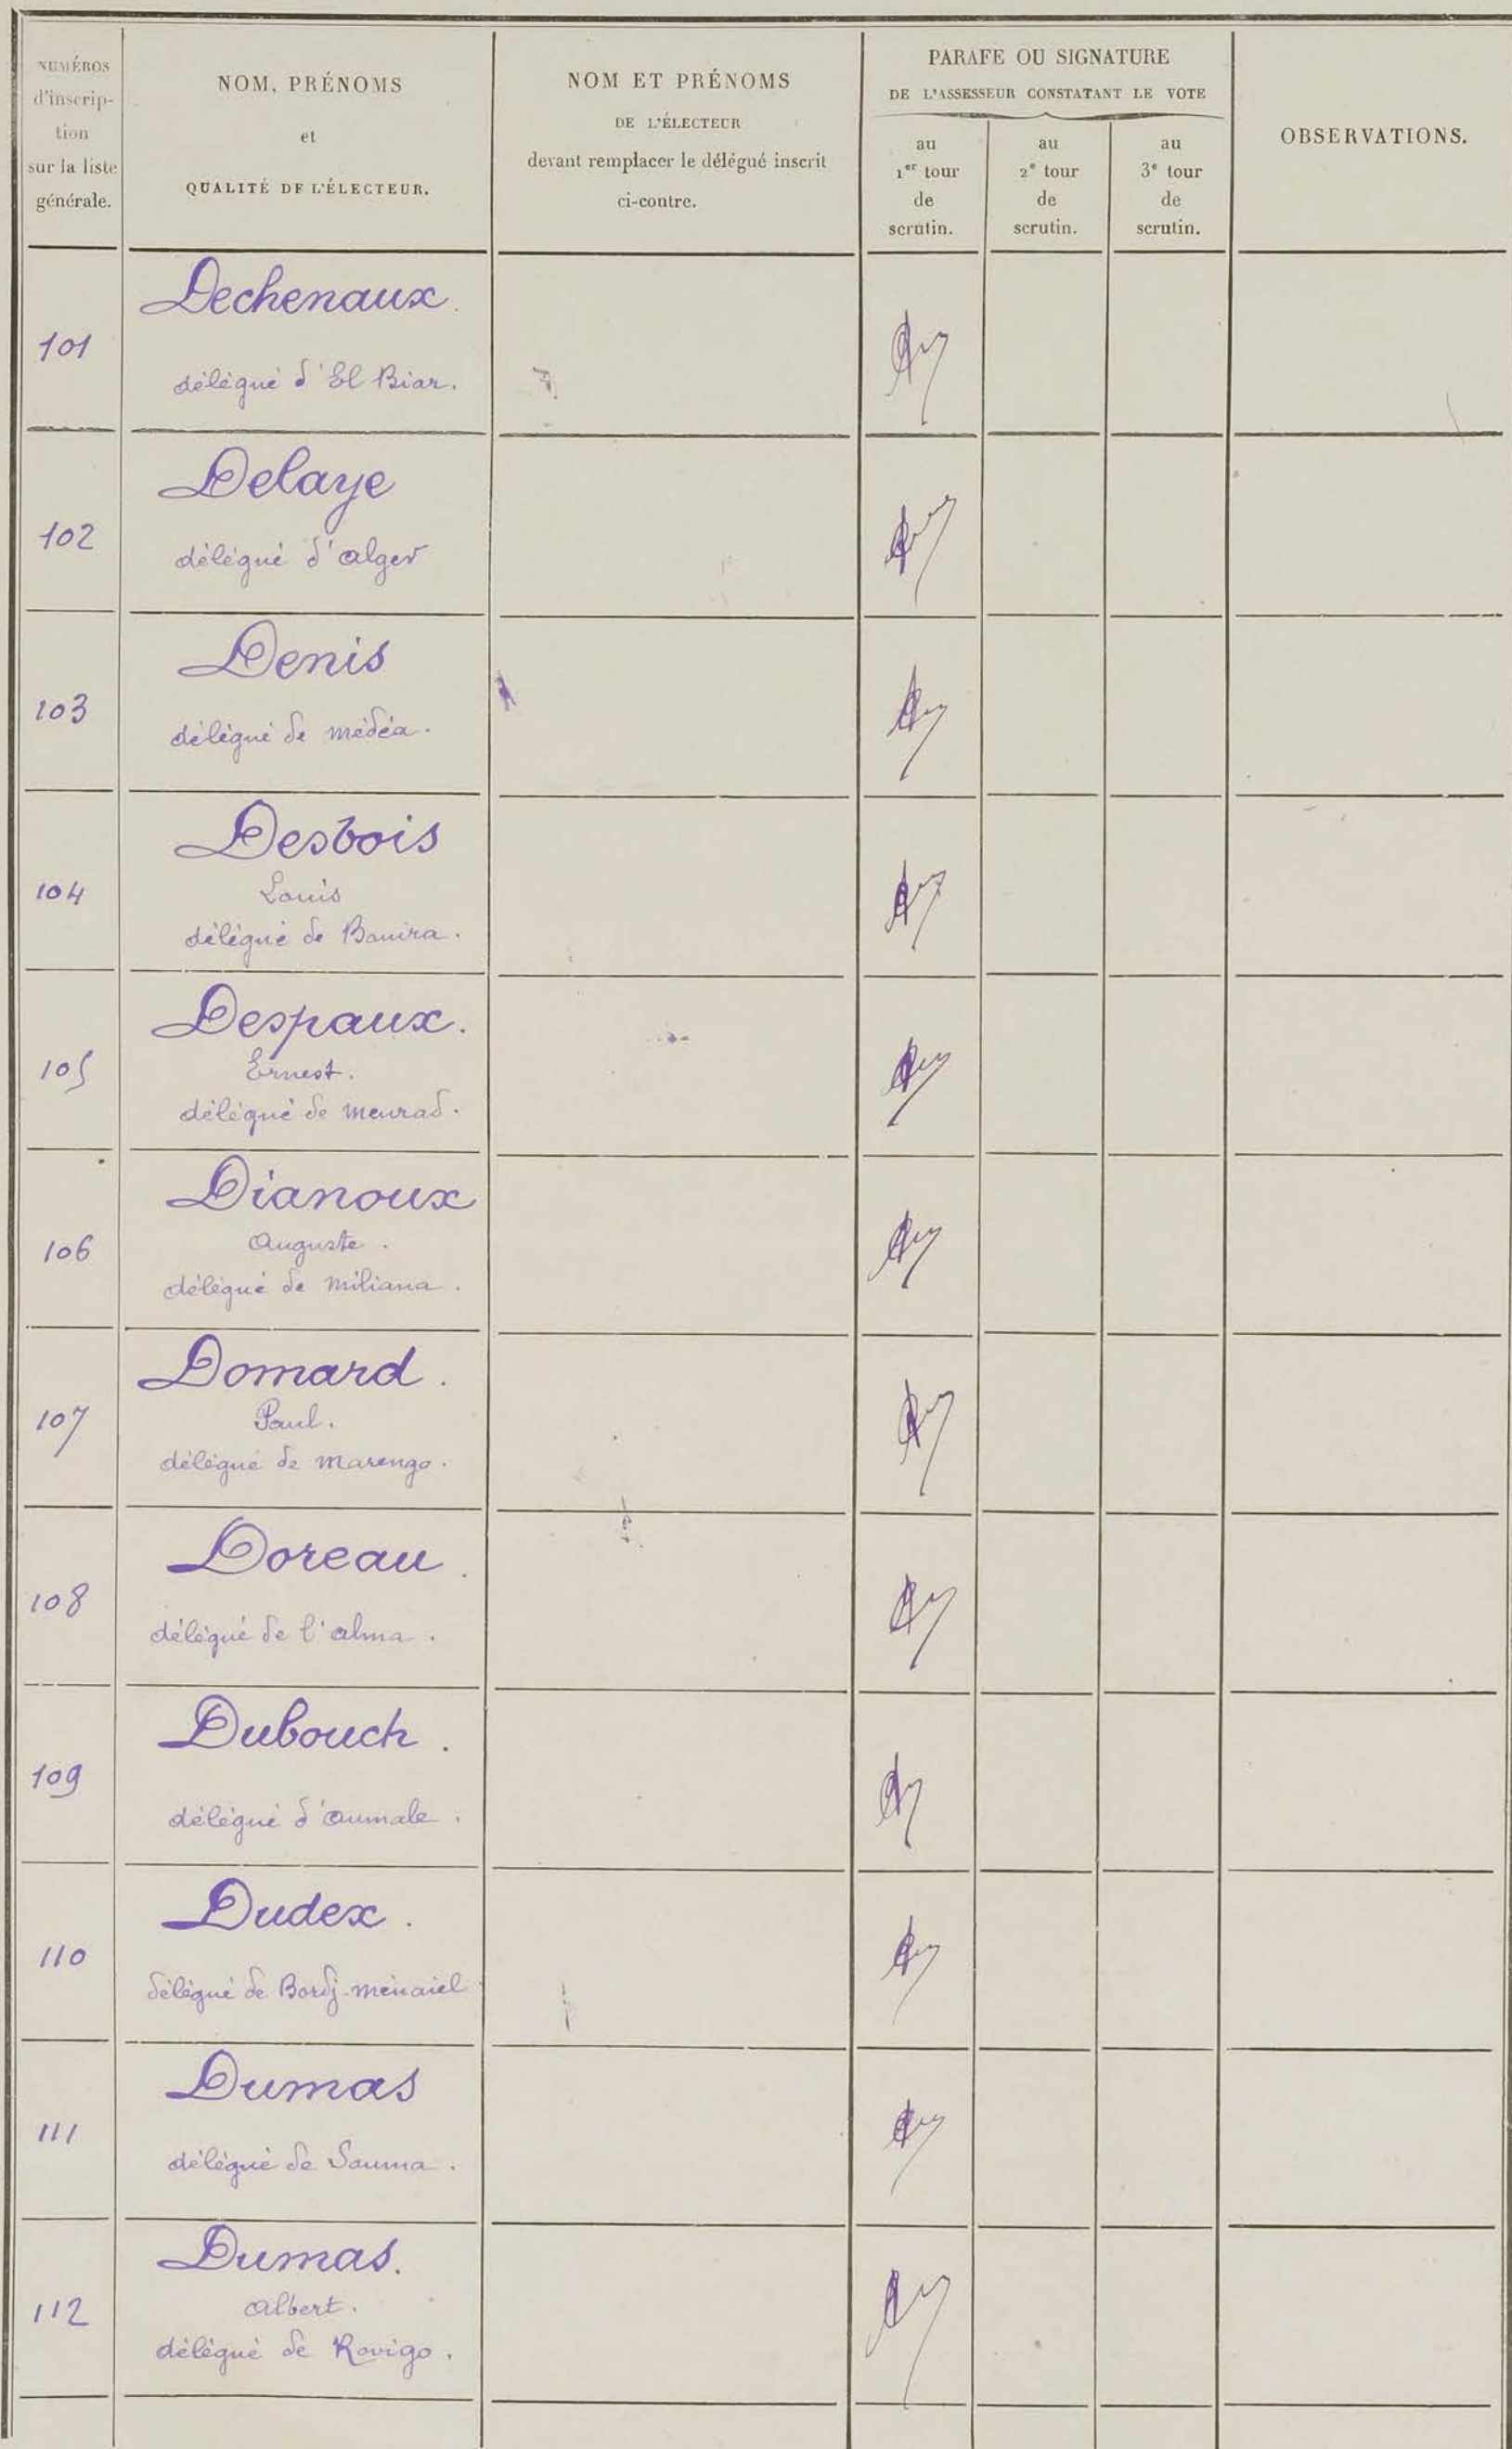 NUMÉROS
d'inscrip-
tion
sur la liste
générale.
NOM, PRÉNOMS
et
QUALITÉ DE L'ÉLECTEUR.
NOM ET PRÉNOMS
DE L'ÉLECTEUR
devant remplacer le délégué inscrit
ci-contre.
PARAFE OU SIGNATURE
DE L'ASSESSEUR CONSTATANT LE VOTE
au
1er tour
de
scrutin.
au
2e tour
de
scrutin.
au
3e tour
de
scrutin.
OBSERVATIONS.
101
Dechenaux.
délégué d'El Biar.
102
Delaye
délégué d'alger
103
Denis
délégué de médéa.
104
Desbois
Louis
délégué de Bouira.
105
Despaux.
Ernest.
délégué de meurad.
106
Dianoux
Auguste.
délégué de miliana.
107
Domard.
Paul.
délégué de marengo.
108
Doreau.
délégué de l'alma.
109
Dubouch.
délégué d'aumale.
110
Dudex.
délégué de Bordj-ménaiel
111
Dumas
délégué de Souma.
112
Dumas.
albert.
délégué de Rovigo.